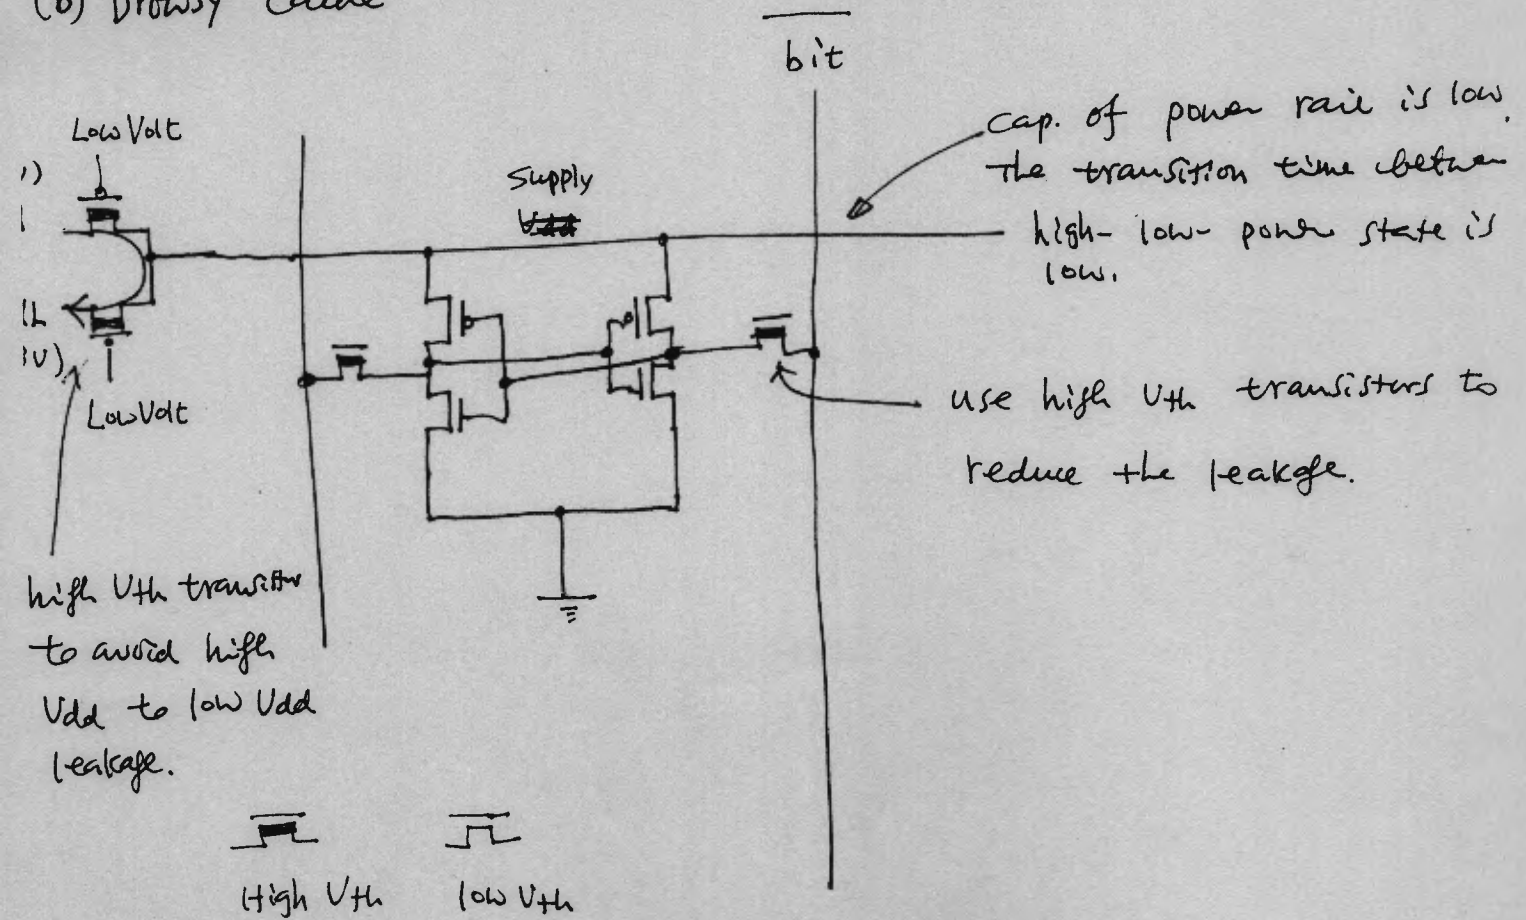 (b) Drowsy
bit
Low Volt
1)
Supply
Vdd
cap. of power rail is low.
The transition time between
high- low- power state is
low.
IV)
Low Volt
use high Vth transistors to
reduce the leakage.
high Vth transistor
to avoid high
Vdd to low Vdd
leakage.
High Vth
low Vth